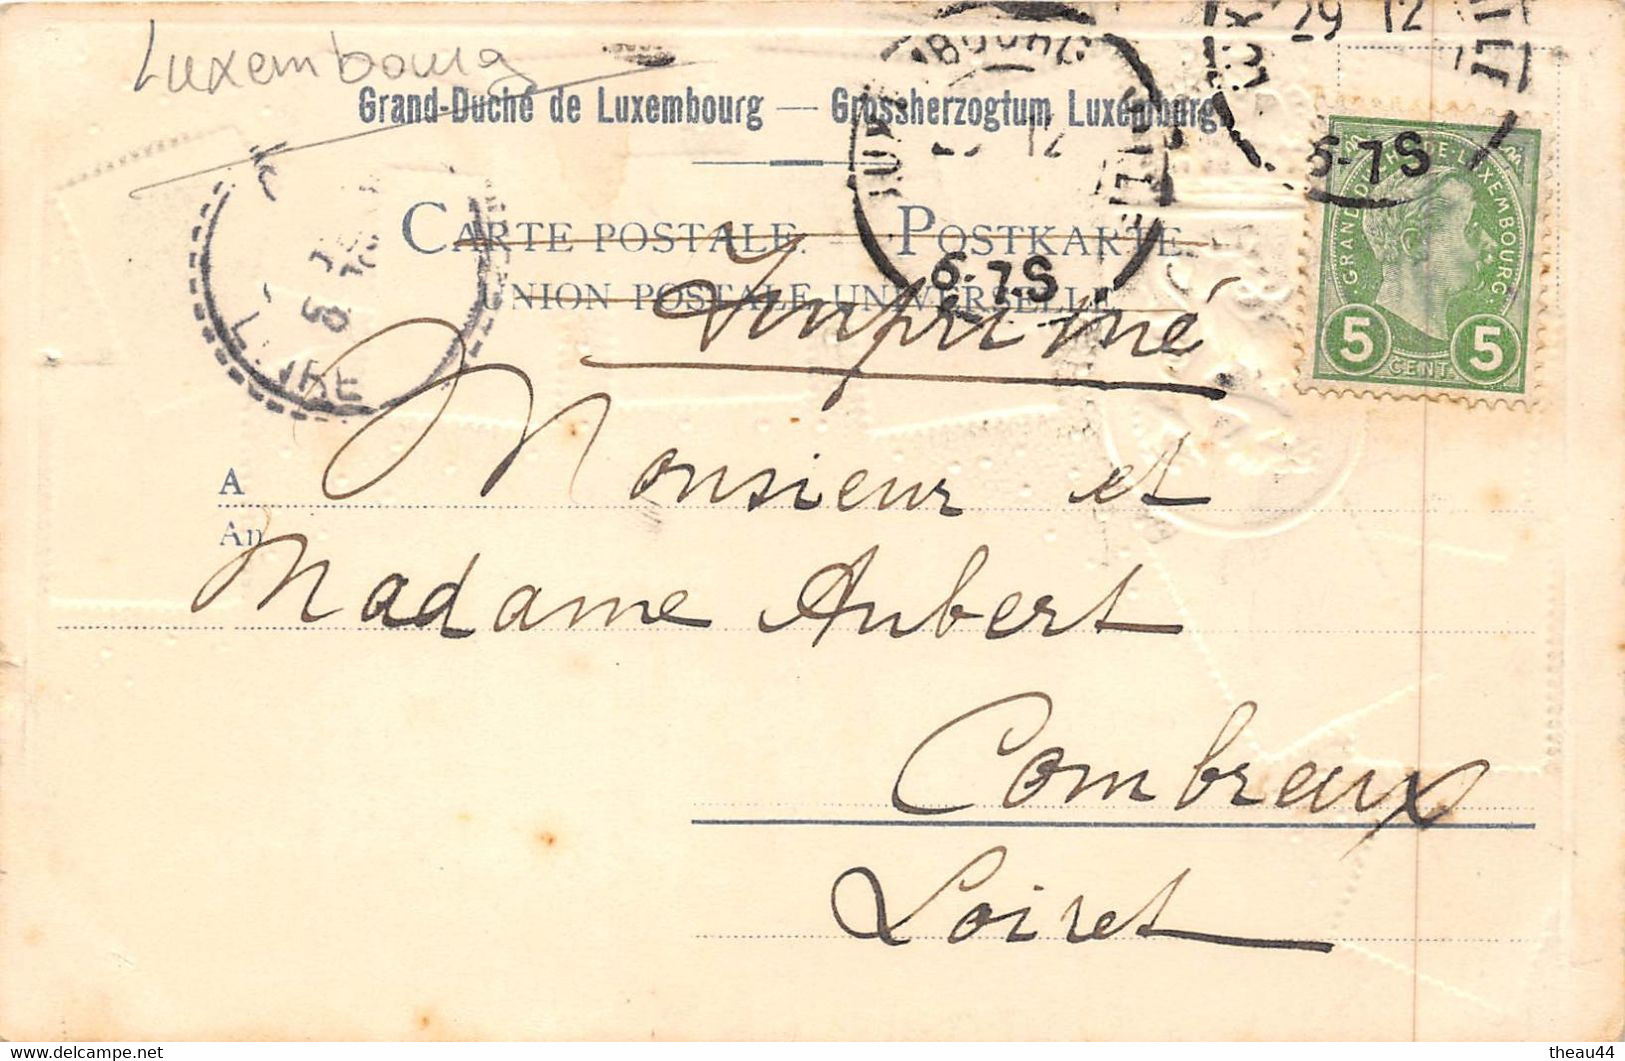 Luxembourg
Grand-Duché de Luxembourg — Grossherzogtum Luxemburg
CARTE POSTALE. POSTKARTE.
UNION POSTALE UNIVERSELLE
Imprimé
29 12
6-7S
6-7S
GRAND DUCHE DE LUXEMBOURG.
5 CENT. 5
A
An
Monsieur et
Madame Aubert
Combreux
Loiret
www.delcampe.net
theau44